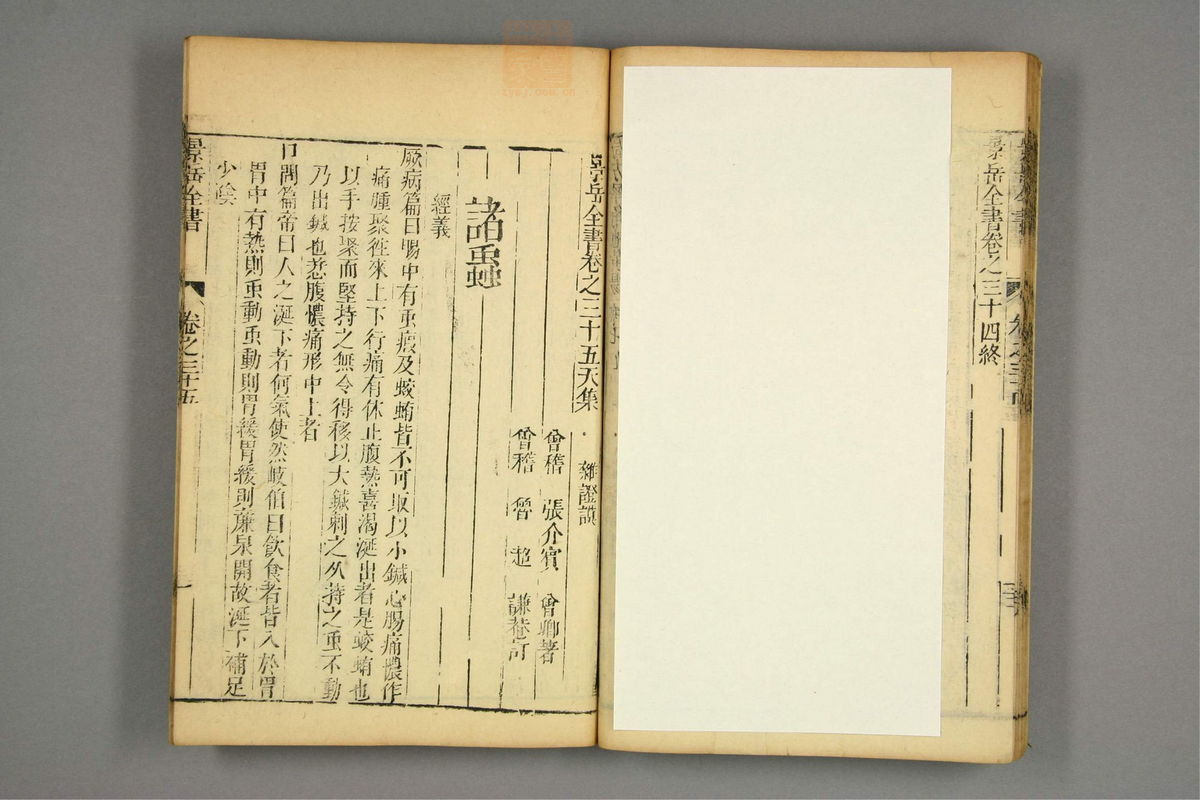 景岳全書卷之三十四終
景岳全書卷之三十五天集
雜證謨
會稽 張介賓 會卿著
會稽 魯超 謙菴訂
諸蟲
經義
厥病篇曰腸中有䖝瘕及蛟蛕皆不可取以小鍼心腸痛憹作
痛腫聚徃來上下行痛有休止腹熱喜渴涎出者是蛟蛕也
以手按聚而堅持之無令得移以大鍼刺之久持之䖝不動
乃出鍼也恙腹憹痛形中上者
口問篇帝曰人之涎下者何氣使然岐伯曰飲食者皆入於胃
胃中有熱則䖝動䖝動則胃緩胃緩則廉泉開故涎下補足
少陰
景岳全書
卷之三十五
一
zysj.com.cn